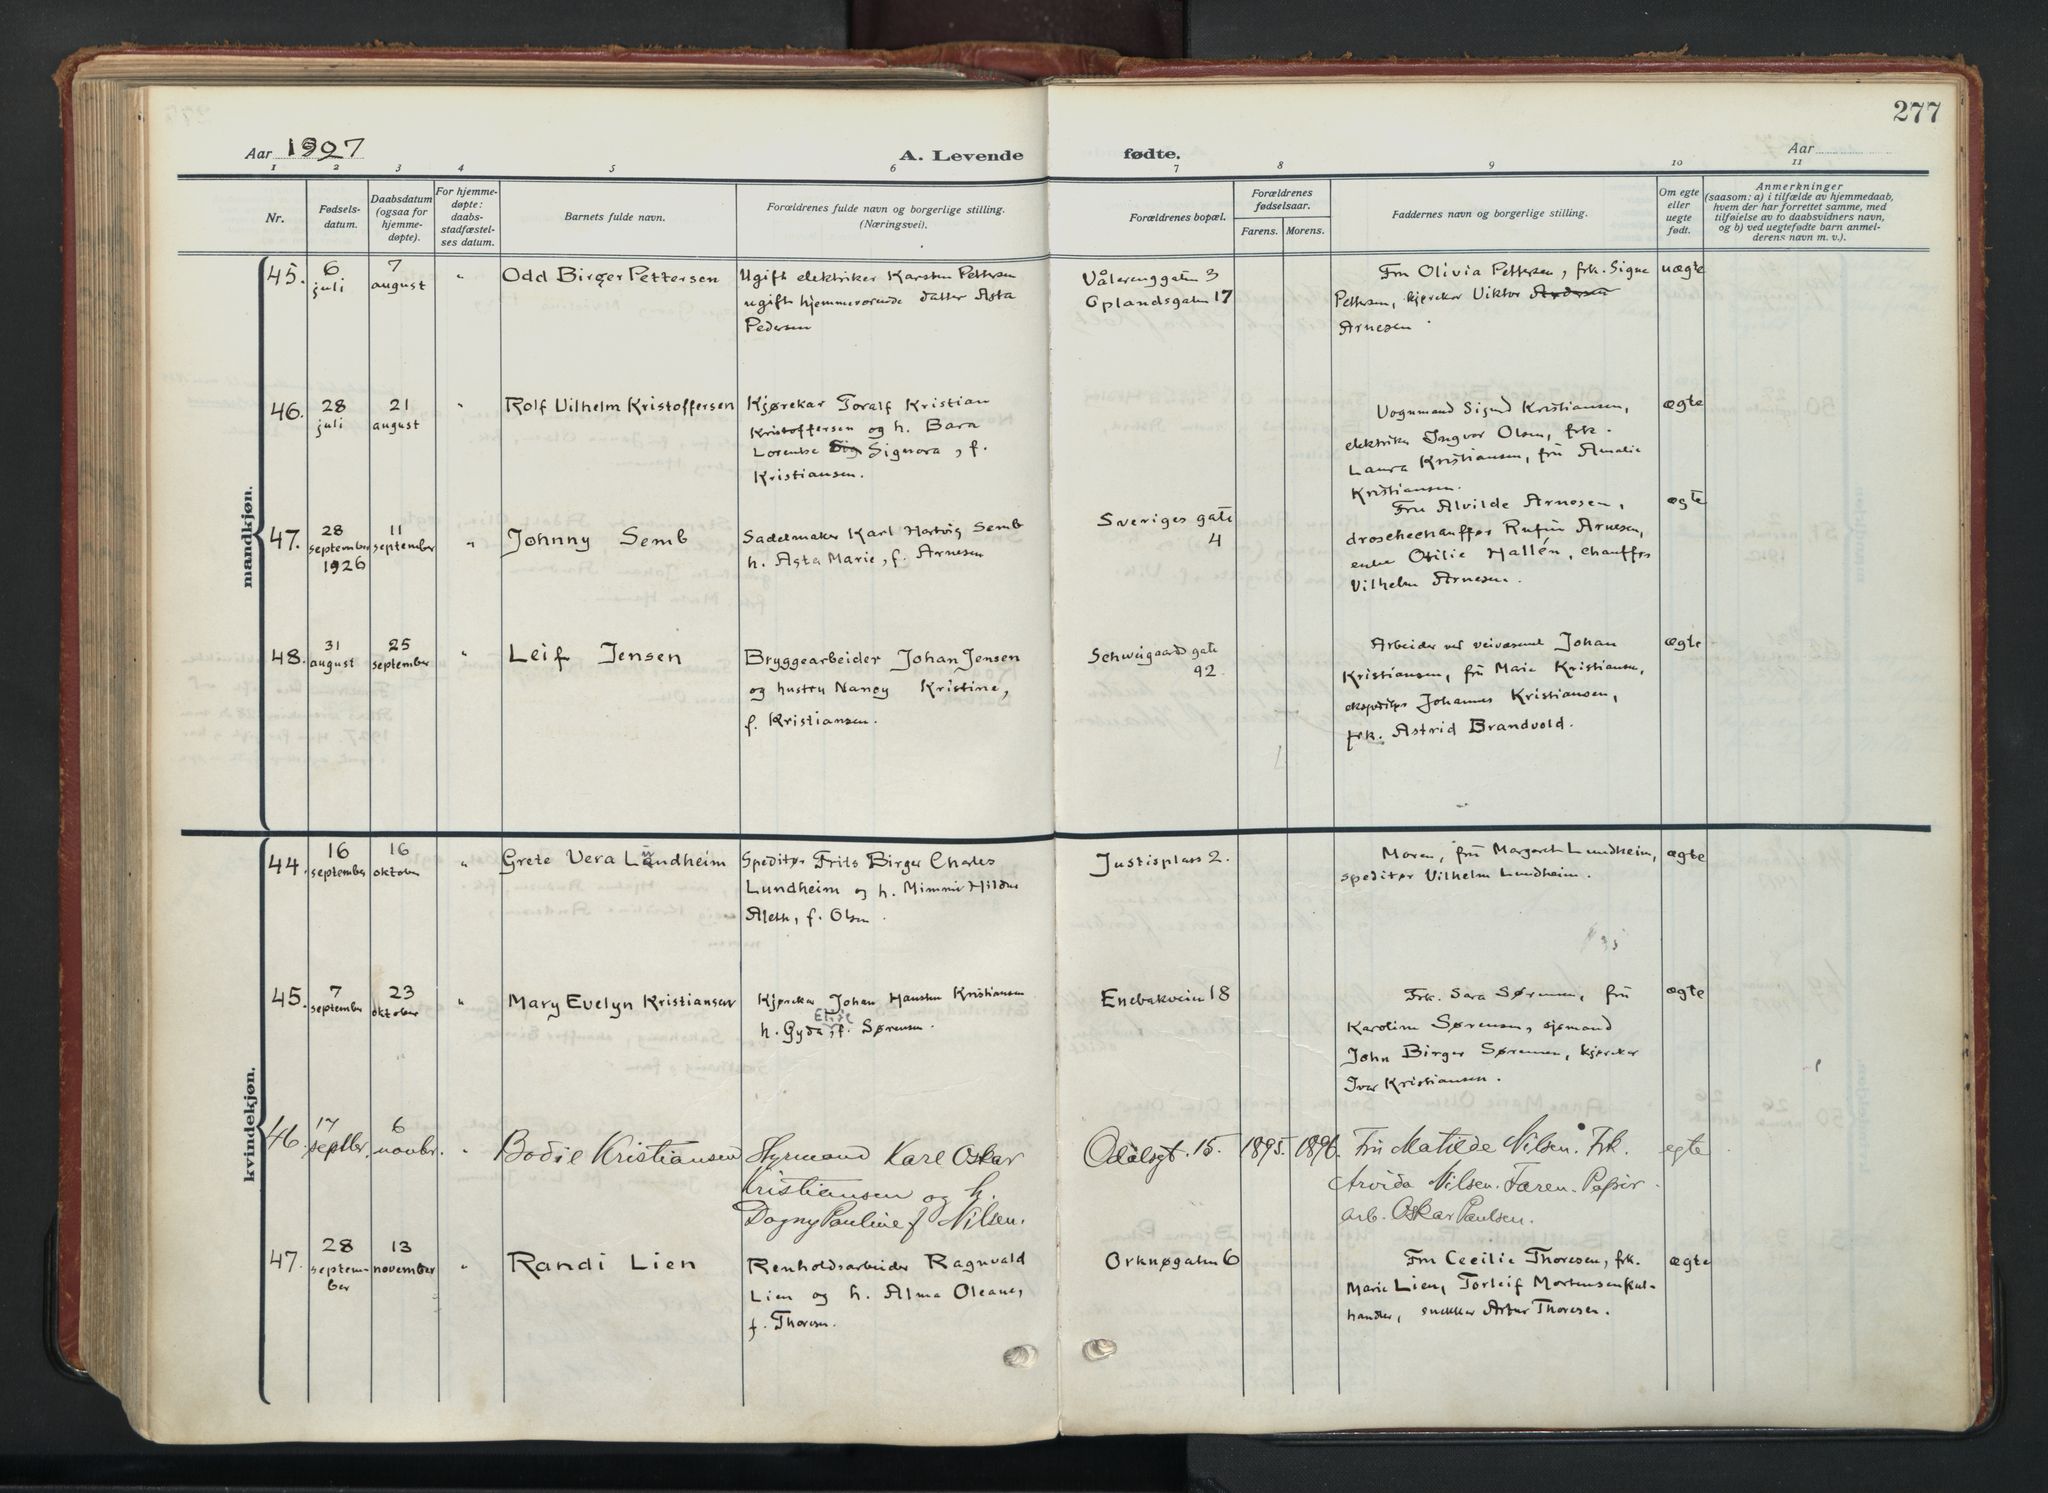 277
Aar 1927
A. Levende
fødte.
Aar
1 2 3 4 5 6 7 8 9 10 11
Nr.
Fødsels-
datum.
Daabsdatum
(ogsaa for
hjemme-
døpte).
For hjemme-
døpte:
daabs-
stadfæstel-
ses datum.
Barnets fulde navn.
Forældrenes fulde navn og borgerlige stilling.
(Næringsvei).
Forældrenes bopæl.
Forældrenes
fødselsaar.
Farens. Morens.
Faddernes navn og borgerlige stilling.
Om egte
eller
uegte
født.
Anmerkninger
(saasom: a) i tilfælde av hjemmedaab,
hvem der har forrettet samme, med
tilføielse av to daabsvidners navn,
og b) ved uegtefødte barn anmel-
derens navn m. v.).
mandkjøn.
45.
6
juli
7
august
"
Odd Birger Pettersen
Ugift elektriker Karsten Pettersen
ugift hjemmeværende datter Asta
Pedersen
Vålerenggaten 3
Oplandsgaten 17
Fru Olivia Pettersen, frk. Signe
Pettersen, kjørekar Viktor Andersen
Arnesen
uægte
46.
28
juli
21
august
"
Rolf Vilhelm Kristoffersen
Kjørekar Toralf Kristian
Kristoffersen og h. Bara
Lorentse Sig Signora, f.
Kristiansen.
Vognmand Sigurd Kristiansen,
elektriker Ingvar Olsen, frk.
Laura Kristiansen, fru Amalie
Kristiansen.
ægte
47.
28
september
1926
11
september
"
Johnny Semb
Sadelmaker Karl Hartvig Semb
h. Asta Marie, f. Arnesen
Sveriges gate
4
Fru Alvilde Arnesen,
droschechauffør Rufin Arnesen,
enke Otilie Hallén, chauffør
Vilhelm Arnesen.
ægte
48.
31
august
25
september
"
Leif Jensen
Bryggearbeider Johan Jensen
og hustru Nancy Kristine,
f. Kristiansen.
Schweigaards gate
92.
Arbeider ved veivæsenet Johan
Kristiansen, fru Marie Kristiansen,
ekspeditør Johannes Kristiansen,
frk. Astrid Brandvold.
ægte
kvindekjøn.
44.
16
september
16
oktober
"
Grete Vera Lundheim
Speditør Frits Birger Charles
Lundheim og h. Mimmi Hildur
Aleth, f. Olsen.
Justisplass 2.
Moren, fru Margaret Lundheim,
speditør Vilhelm Lundheim.
ægte
45.
7
september
23
oktober
"
Mary Evelyn Kristiansen
Kjørekar Johan Hansten Kristiansen
h. Gyda Elise, f. Sørensen.
Enebakveien 18
Frk. Sara Sørensen, fru
Karoline Sørensen, sjømand
John Birger Sørensen, kjørekar
Ivar Kristiansen.
ægte
46.
17
septbr.
6
novbr.
"
Bodil Kristiansen
Styrmand Karl Oskar
Kristiansen og h.
Dagny Pauline f. Nilsen.
Odalsgt. 15.
1895.
1896.
Fru Matilde Nilsen. Frk.
Arvida Nilsen. Faren. Papir-
arb. Oskar Paulsen.
egte
47.
28
septem-
ber
13
november
"
Randi Lien
Renholdsarbeider Ragnvald
Lien og h. Alma Oleane,
f. Thoresen.
Orknøgaten 6
Fru Cecilie Thoresen, frk.
Marie Lien, Torleif Mortensen kul-
handler, snekker Artur Thoresen.
ægte